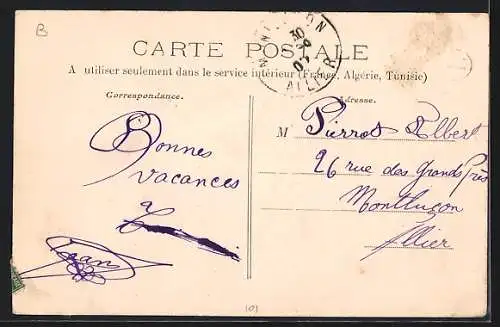 B
CARTE POSTALE
A utiliser seulement dans le service intérieur (France, Algérie, Tunisie)
Correspondance.
Adresse.
Bonnes
vacances
Jean
M Pierrot Albert
26 rue des Grands Prés
Montluçon
Allier
ALLIER
30
(0)